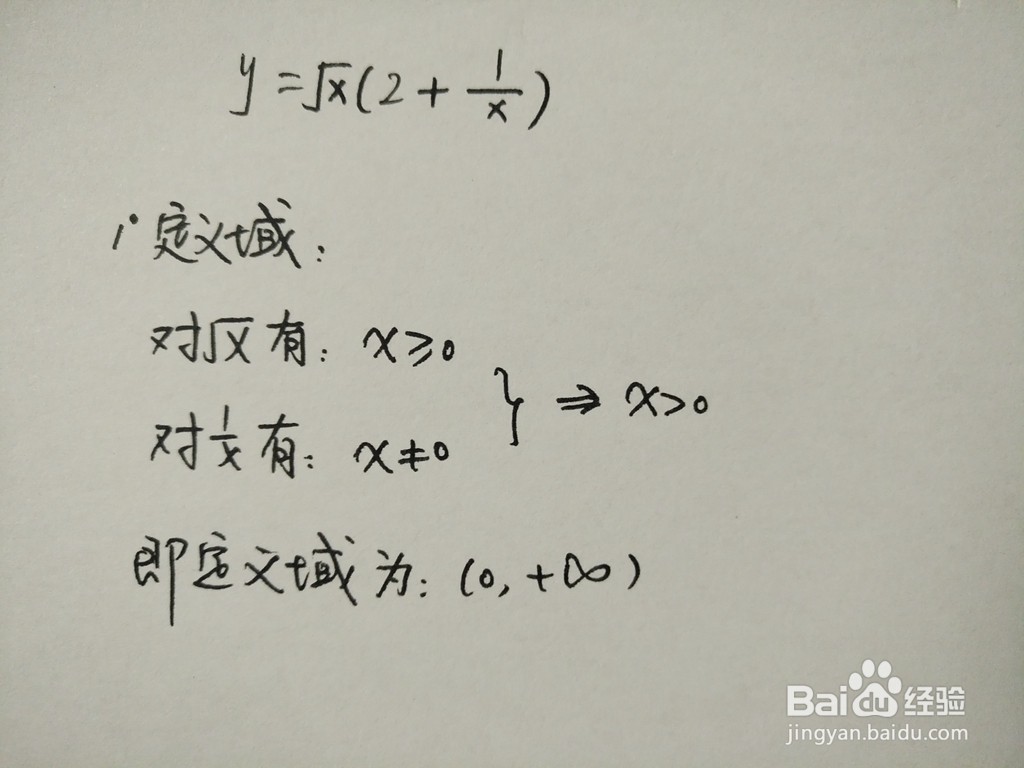 y=√x(2+1/x)
1°定义域：
对√x有：x≥0
对1/x有：x≠0
} ⇒ x>0
即定义域为：(0,+∞)
Baidu经验
jingyan.baidu.com